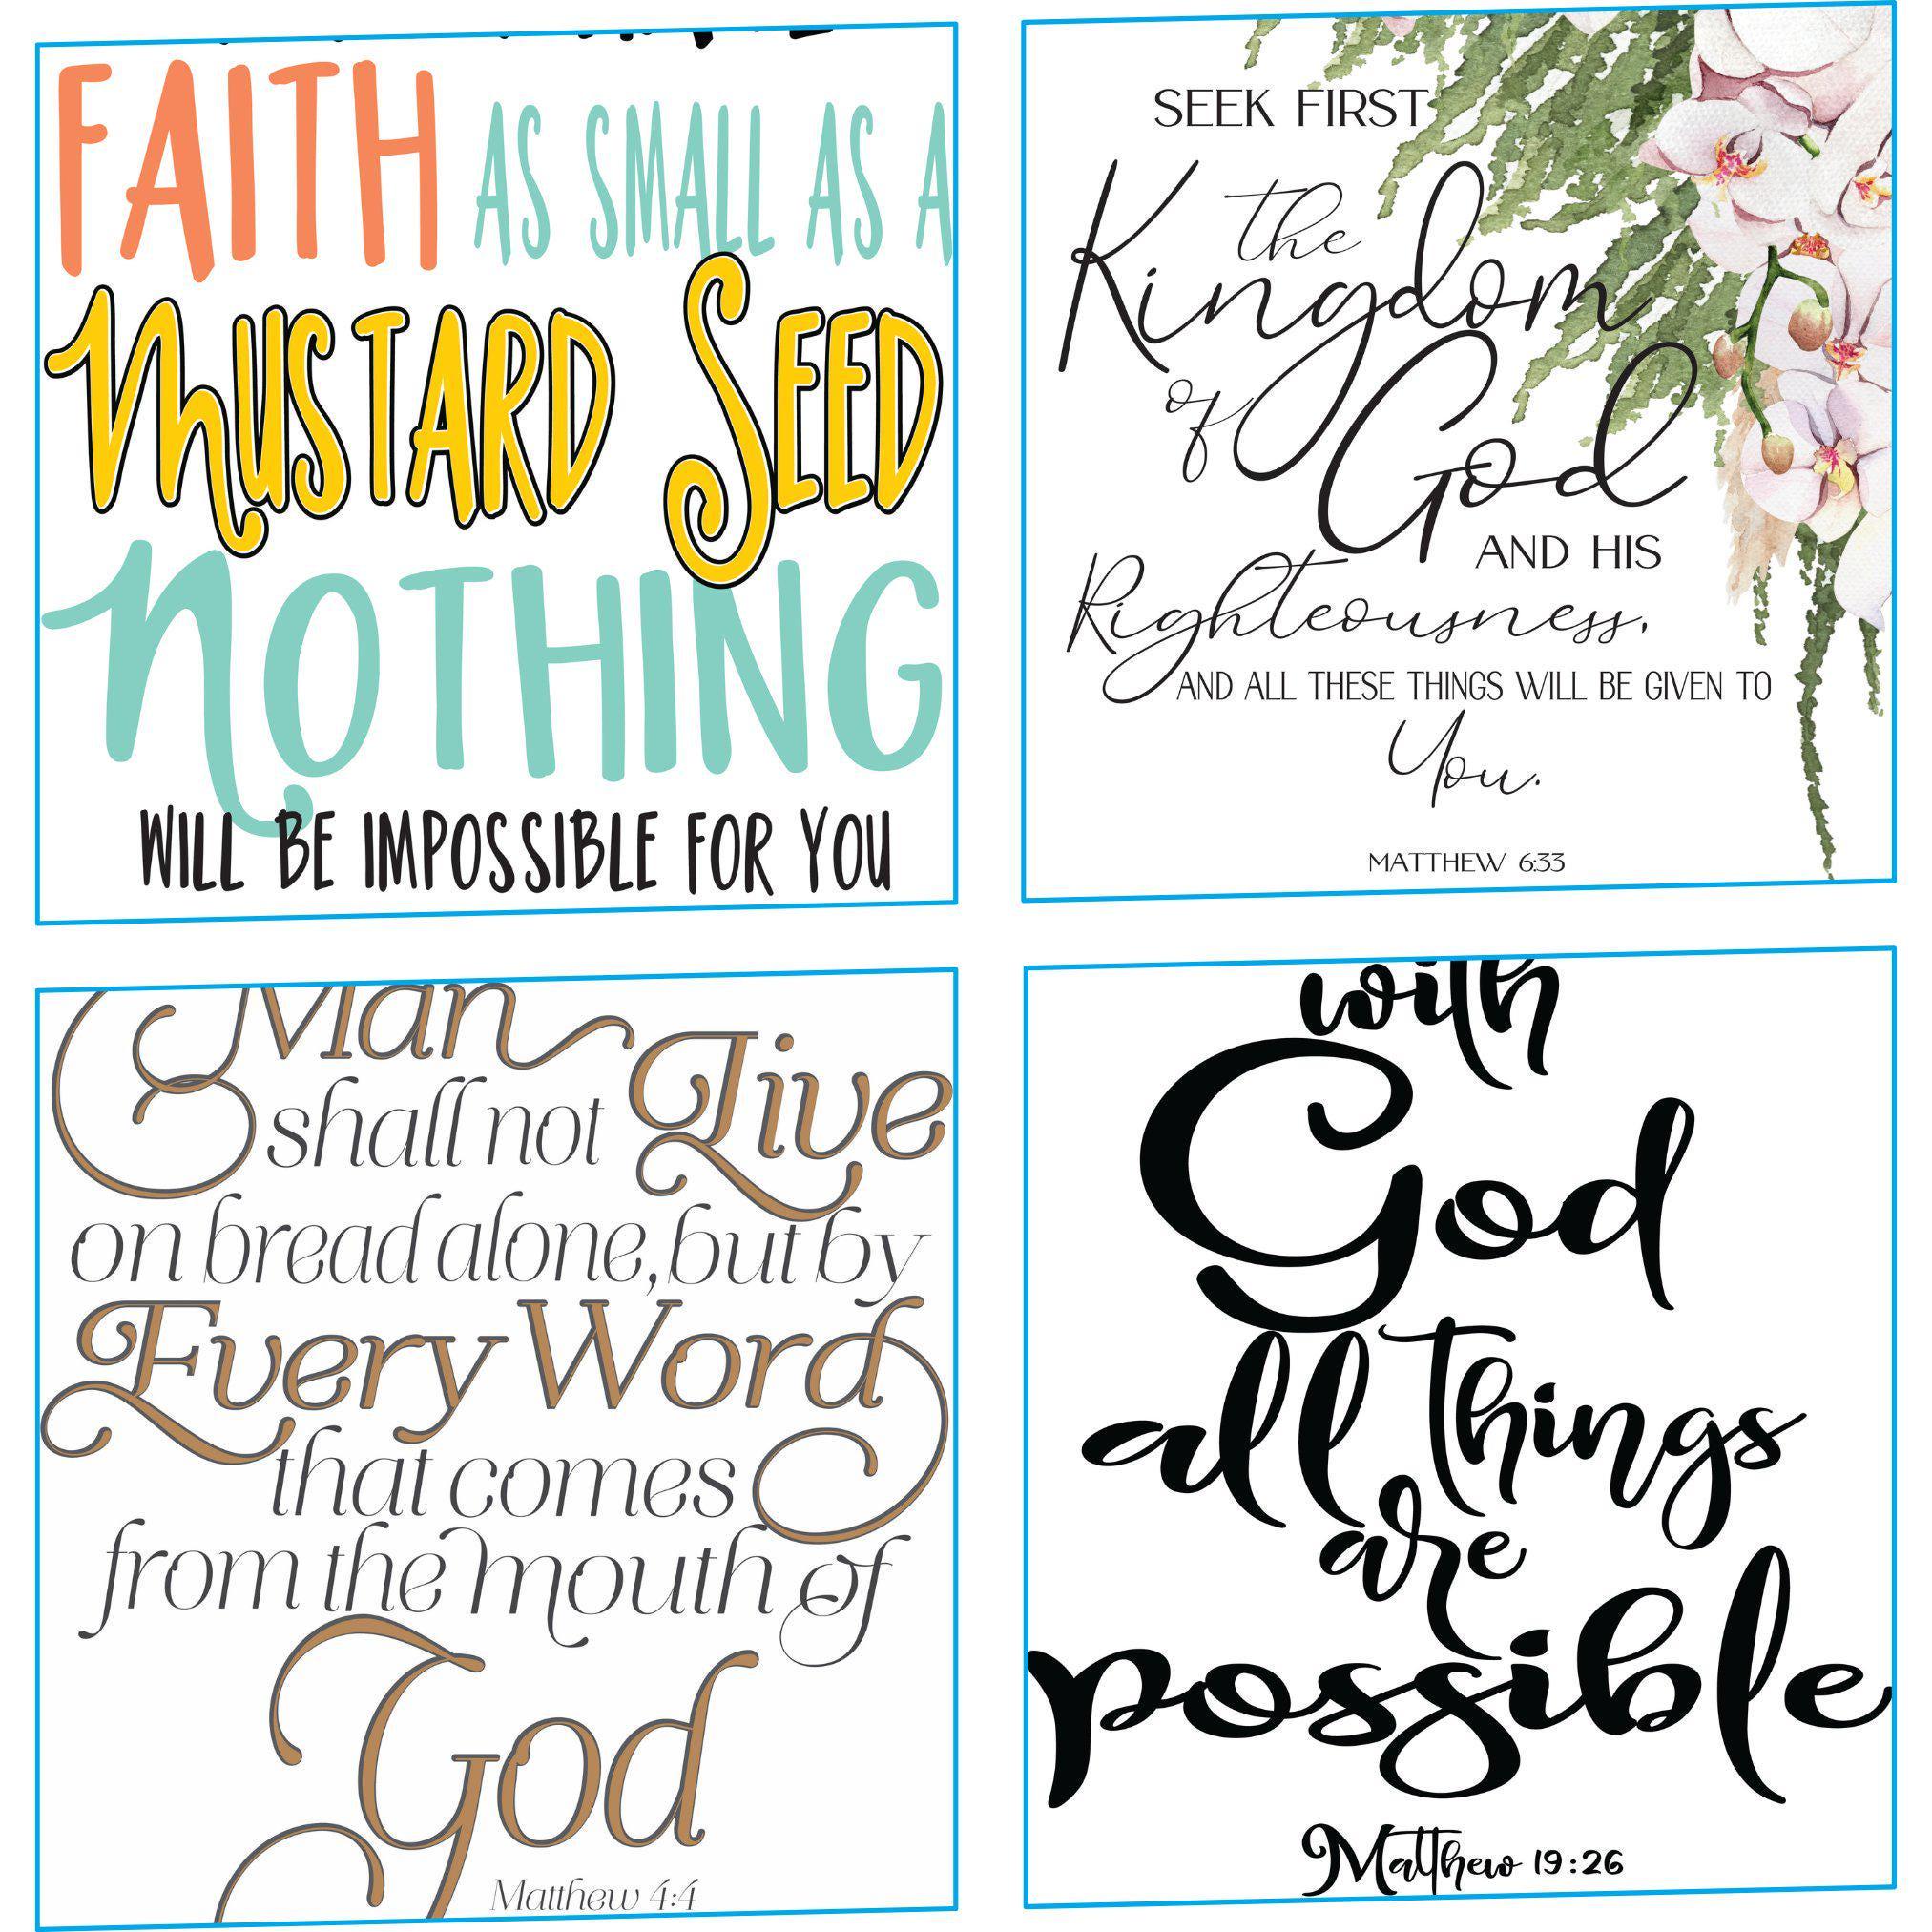 FAITH AS SMALL AS A
MUSTARD SEED
NOTHING
WILL BE IMPOSSIBLE FOR YOU
SEEK FIRST
the
Kingdom
of
God
AND HIS
Righteousness,
AND ALL THESE THINGS WILL BE GIVEN TO
You.
MATTHEW 6:33
Man
shall not Live
on bread alone, but by
Every Word
that comes
from the mouth of
God
Matthew 4:4
with
God
all things
are
possible
Matthew 19:26